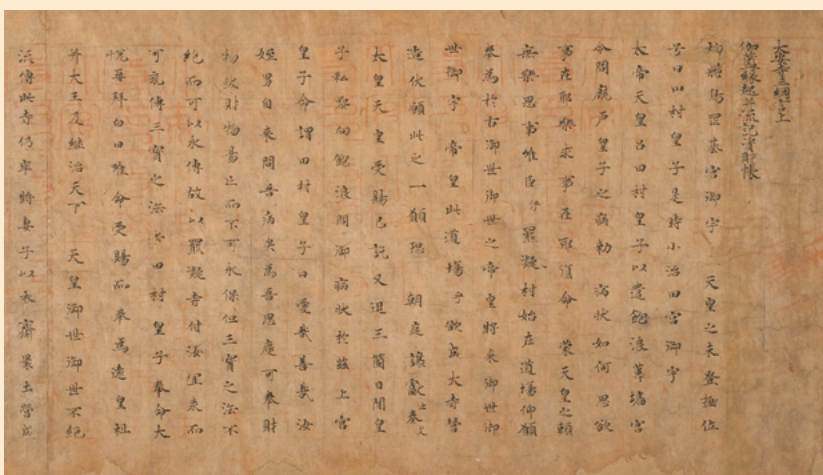 大安寺三綱言上
伽藍縁起并流記資財帳
初飛鳥岡基宮御宇 天皇之未登極位
号曰田村皇子是時小治田宮御宇
太帝天皇召田村皇子以遣飽浪葦墻宮
令問厩戸皇子之病勅病状如何思欲
事在耶樂求事在耶復命蒙天皇之頼
無樂思事唯臣伊羆凝村始在道場仰願
奉為於古御世御世之帝皇将来御世御
世御宇 帝皇此道場乎欲成大寺営
造伏願此之一願恐 朝庭讓獻止奏支
太皇天皇受賜已訖又退三箇日間皇
子私参向飽浪問御病状於茲上宮
皇子命謂田村皇子曰愛哉善哉汝
姪男自来問吾病矣為吾思慶可奉財
物然財物易亡而不可永保但三寳之法不
絶而可以永傳故以羆凝寺付汝宜承而
可永傳三寳之法者田村皇子奉命大
悦再拜白曰唯命受賜而奉為遠皇祖
并大王及継治天下 天皇御世御世不絶
流傳此寺仍奉将妻子以衣齋裹土營成